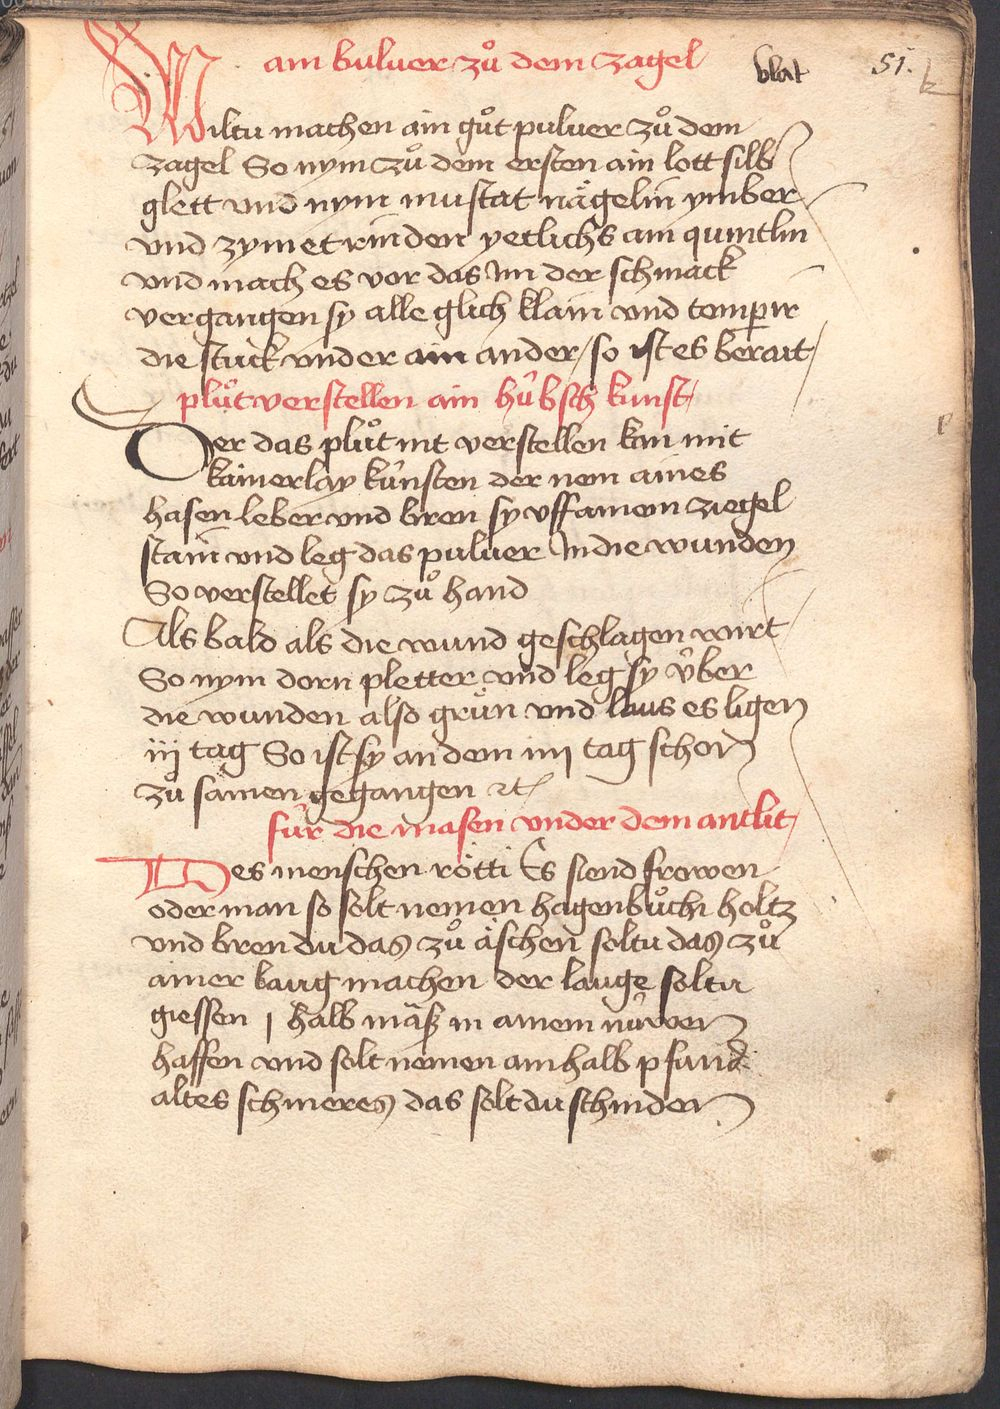 ain buluer zů dem zagel blat 51.
Wiltu machen ain gůt puluer zů dem
zagel So nym zů dem ersten ain lott silb
glett vnd nym mustat nägelin ymber
vnd zymetrinden yetlichs ain quintlin
vnd mach es vor das Im der schmack
vergangen sy alle glich klain vnd temperir
die stuck vnder ain ander / so ist es berait /
plůt verstellen ain hübsch kunst /
Der das plůt nit verstellen kan mit
kainerlay künsten der nem aines
hasen leber vnd bren sy vff ainem ziegel
stain vnd leg das puluer In die wunden
So verstellet sy zů hand
Als bald als die wund geschlagen wirt /
So nym dorn pletter vnd leg sy über
die wunden also grün vnd laus es ligen
iij tag So ist sy an dem iiij tag schon
zů samen gegangen
für die masen vnder dem antlit /
Des menschen rötti Es siend frowen
oder man so solt nemen hagenbůchi holtz
vnd bren du das zů äschen soltu das zů
ainer laug machen der lauge soltu
giessen j halb mäß in ainem nüwen
haffen vnd solt nemen ain halb pfund
altes schmeres das solt du schinden